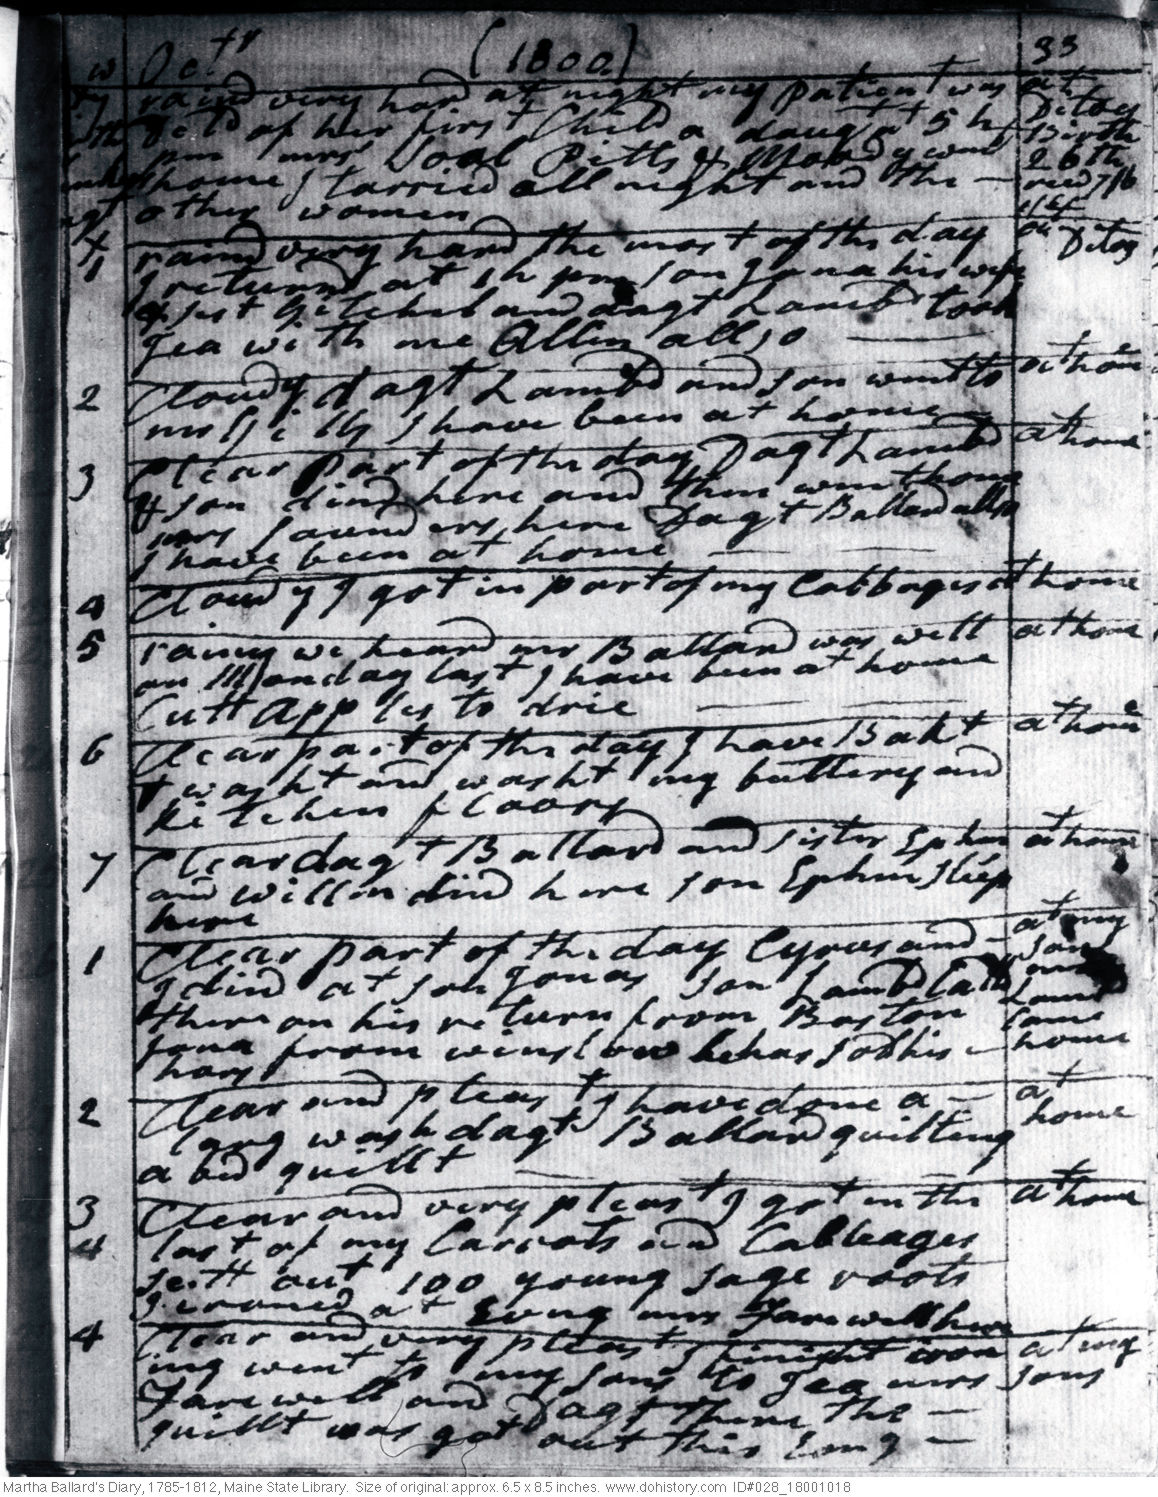 Octr (1800) 33
raind very hard at night my patient was at
Deld of her first Child a daugt at 5 h Ditoes
pm mrs Soal Pitts & Mobdy went Birth
home I tarried all night and the — 26th
other women
raind very hard the most of the day at Ditoes
1 I returnd at 1 h pm son Jona his wife
& sist Gitchel and dagt Lambd took
Tea with me Allin allso —
2 Cloudy dagt Lambd and son went to at home
mr I have been at home
3 Clear part of the day Dagt Lambd at home
& son dind here and then went home
mrs Saunders here Dagt Ballard allso
I have been at home — —
4 Cloudy I got in part of my Cabbages at home
5 rainy we heard mr Ballard was well at home
on Monday last I have been at home
Cutt Apples to drie — —
6 Clear part of the day I have Bakt at home
& washt and washt my buttery and
kitchen floors
7 Clear dagt Ballard and sister Ephm at home
and William dind here son Ephm sleep
here
1 Clear part of the day Cyrus and — at my
I dind at son Jonas son Lambd Calld sons
there on his return from Boston
Jona from winslow he has sod his — home
hors
2 Clear and pleast I have done a — at
larg wash dagt Ballard quilting home
a bed quillt —
3 Clear and very pleast I got in the at home
4 last of my Carrots and Cabbages
sett out 100 young sage roots
I ironed at Evng mrs Farewell here
4 Clear and very pleast I finisht iron at my
ing went to my sons to Tea mrs sons
Farewell and Dagt there the —
quillt was got out this Evng —
Martha Ballard's Diary, 1785-1812, Maine State Library. Size of original: approx. 6.5 x 8.5 inches. www.dohistory.com ID#028_18001018